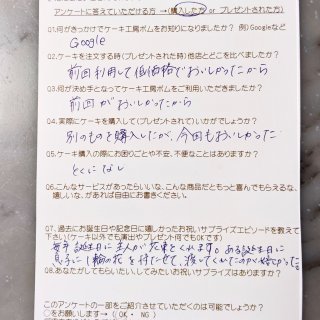 アンケートに答えていただける方 → (購入した方 or プレゼントされた方)
01.何がきっかけでケーキ工房ボムをお知りになりましたか? 例)Googleなど
Google
02.ケーキを注文する時(プレゼントされた時)他店とどこを比べましたか?
前回利用して低価格でおいしかったから
03.何が決め手となってケーキ工房ボムをご利用いただきましたか?
前回がおいしかったから
04.実際にケーキを購入して(プレゼントされて)いかがでしょうか?
別のものを購入したが、今回もおいしかった
05.ケーキ購入の際にお困りごとや不安、不便なことはありますか?
とくになし
06.こんなサービスがあったらいいな、こんな商品だともっと喜んでもらえるな、
嬉しいな、があれば自由にお書きください。
07.過去にお誕生日や記念日に嬉しかったお祝いサプライズエピソードを教えて
下さい(ケーキ以外でも演出やプレゼント何でもOKです)
毎年 誕生日に主人が花束をくれます。ある誕生日に
息子に1輪の花を持たせて、渡してくれたのが嬉しかった。
08.あなたがしてもらいたい、してみたいお祝いサプライズはありますか?
このアンケートの一部をご紹介させていただくのは可能でしょうか?
○をお願いします→( OK ・ NG )